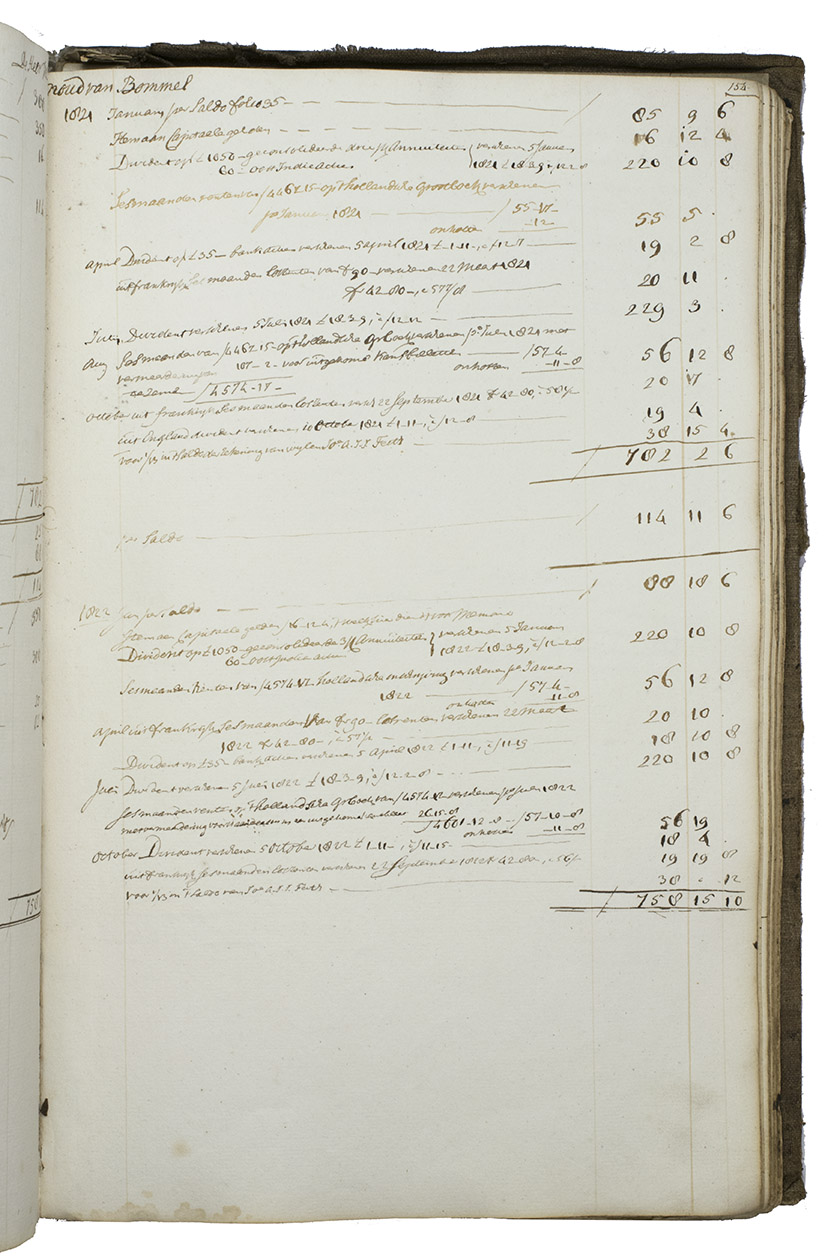 van Bommel
154
1821 January per Saldo folio 35 — / 85 9 6
Hem aan Capitaale gelden — 16 12 4
Dividend op £ 1050 — geconsolideerde drie p/c Annuiteiten verschenen 5 January
60 — Oost Indie actien 1821 £ 18-3-9, a / 12-12-8 220 10 8
Ses maanden renten van / 4467-15 — op t hollandsche Grootboek verschenen
po January 1821 — / 55-17-
onkosten -12- 55 5 .
April Dividend op £ 35 — bank actien verschenen 5 april 1821 £ -1-11-, a / 12-7 — 19 2 8
uit frankrijk ses maanden losrenten van fr 90 — verschenen 22 Meert 1821
fr 42-80 —, a 57 7/8 — 20 11 .
July Dividend verschenen 5 July 1821 £ 18-3-9, a / 12-12 — 229 3 .
Aug Ses maanden van / 4467-15 — op t hollandsche Grootboek verschenen po July 1821 met
vermeerderingen 107-2- voor uitgekomene Kansbilletten — / 57-4-
te zamen / 4574-17- onkosten -11-8 56 12 8
October uit frankrijk Ses maanden losrenten verschenen 22 September 1821 fr 42-80, a 58 20 17 .
uit England dividend verschenen 10 October 1821 £ 1-11-, a / 12-8 — 19 4 .
voor 1/3 in t Saldo der Rekening van wylen A. J. J. 38 15 4
/ 782 2 6
per Saldo — / 114 11 6
1822 Jan per Saldo — / 88 18 6
Item aan Capitaale gelden / 16-12-4 voor Memorie
Dividend op £ 1050 — geconsolideerde 3 p/c Annuiteiten verschenen 5 January
60 — Oost Indie actien 1822 £ 18-3-9, a / 12-2-8 220 10 8
Ses maanden Renten van / 4574-17- hollandsche verschenen po January
1822 — / 57-4-
onkosten -11-8 56 12 8
April uit frankrijk Ses maanden van fr 90 — losrenten verschenen 22 Meert
1822 fr 42-80 —, a 57 1/2 — 20 10 .
Dividend op £ 35 — bank actien verschenen 5 April 1822 £ 1-11-, a / 11-19 18 10 8
July Dividend verschenen 5 July 1822 £ 18-3-9, a / 12-2-8 — 220 10 8
Ses maanden renten op t hollandsche Grboek van / 4574-17- verschenen po July 1822
met vermeerdering voor 26-15-8
/ 4601-12-8 — / 57-10-8
onkosten -11-8 56 19
October Dividend verschenen 5 October 1822 £ 1-11-, a / 11-15- 18 4 .
uit frankrijk ses maanden losrenten verschenen 22 September 1822 fr 42-80-, a 56 19 19 8
voor 1/3 in t Saldo van A. J. J. — 38 . 12
/ 758 15 10